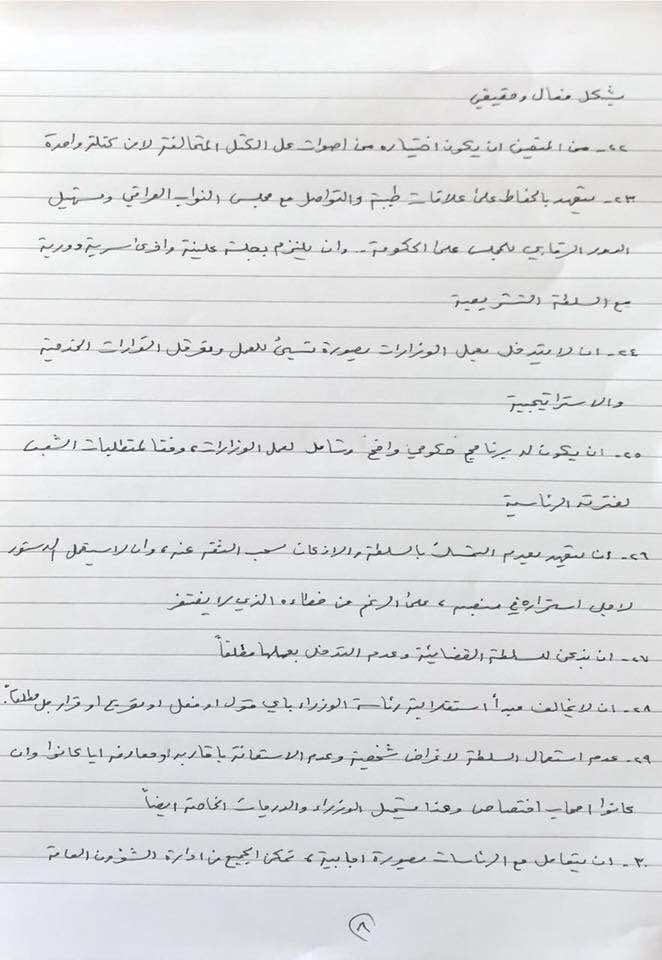 بشكل فعال وحقيقي
٢٢- من المتيقن ان يكون اختياره من اصوات كل الكتل المتحالفة لا من كتلة واحدة
٢٣- يتعهد بالحفاظ على علاقات طيبة والتواصل مع مجلس النواب العراقي وتسهيل
الدور الرقابي للمجلس على الحكومة.. وان يلتزم بجلسة علنية واخرى سرية دورية
مع السلطة التشريعية
٢٤- ان لا يتدخل بعمل الوزارات بصورة تسيئ للعمل وتعرقل القرارات الخدمية
والاستراتيجية
٢٥- ان يكون له برنامج حكومي واضح وشامل لعمل الوزارات، وفقا لمتطلبات الشعب
لفترته الرئاسية
٢٦- ان يتعهد بعدم التمسك بالسلطة والاذعان سحب الثقة عنه، وان لا يستغل الدستور
لاجل استمراره في منصبه، على الرغم من خطاءه الذي لا يغتفر
٢٧- ان يذعن للسلطة القضائية وعدم التدخل بعملها مطلقاً
٢٨- ان لا يخالف مبدأ استقلالية رئاسة الوزراء باي قول او فعل او توقيع او قرار بل مطلقاً.
٢٩- عدم استعمال السلطة لاغراض شخصية وعدم الاستعانة باقاربه او معارفه ايا كانوا وان
كانوا اصحاب اختصاص وهذا يشمل الوزراء والدرجات الخاصة ايضاً
٣٠- ان يتعامل مع الرئاسات بصورة اجابية، تمكن الجميع من ادارة الشؤون العامة
٨